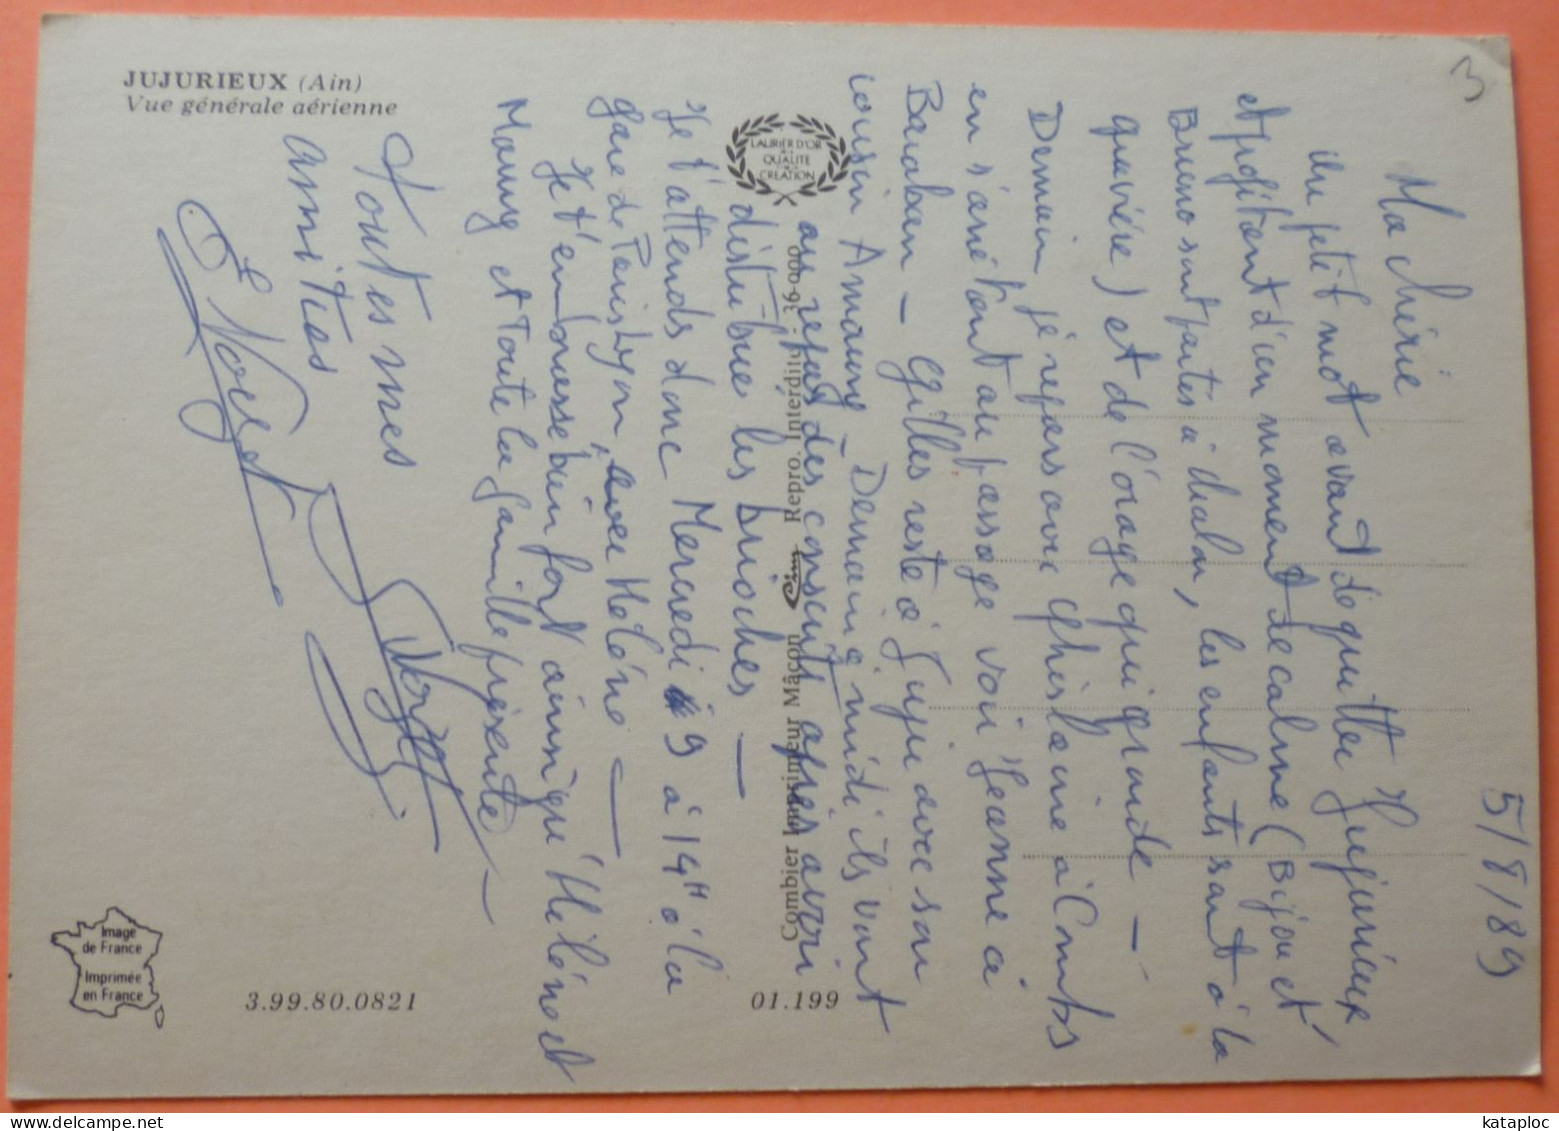 JUJURIEUX (Ain)
Vue générale aérienne
3
5/8/89
Ma chérie
Un petit mot avant de quitter Jujurieux
et profitant d'un moment de calme (Bijou et
Bruno sont partis à chalon, les enfants sont à la
gravière) et de l'orage qui gronde —
Demain, je repars avec Ghislaine à Combs
en s'arrêtant au passage voir Jeanne à
Baraban — Gilles reste à Juju avec son
cousin Amaury — Demain midi ils vont
au repas des conscrits après avoir
distribué les brioches —
Je t'attends donc Mercredi 9 à 14H à la
gare de Paris Lyon, avec Hélène —
Je t'embrasse bien fort ainsi qu'Hélène et
Mamy et toute la famille présente —
Toutes mes
amitiés
LAURIER D'OR
DE LA
QUALITE
CREATION
Combier Imprimeur Mâcon Cim Repro. Interdite - 36.000
01.199
3.99.80.0821
Image
de France
Imprimée
en France
kataploc